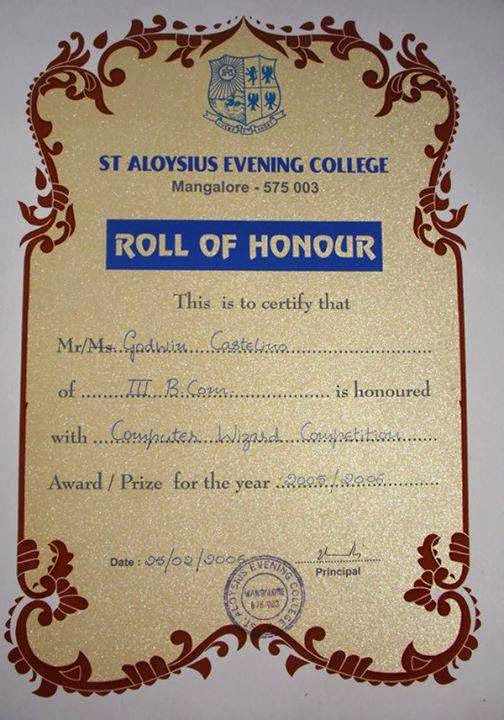 ST ALOYSIUS EVENING COLLEGE
Mangalore - 575 003
ROLL OF HONOUR
This is to certify that
Mr/Ms. Godwin Castelino
of III B.Com is honoured
with Computer Wizard Competition
Award / Prize for the year 2005/2006
Date : 25/02/2006
Principal
ST. ALOYSIUS EVENING COLLEGE
MANGALORE
575 003